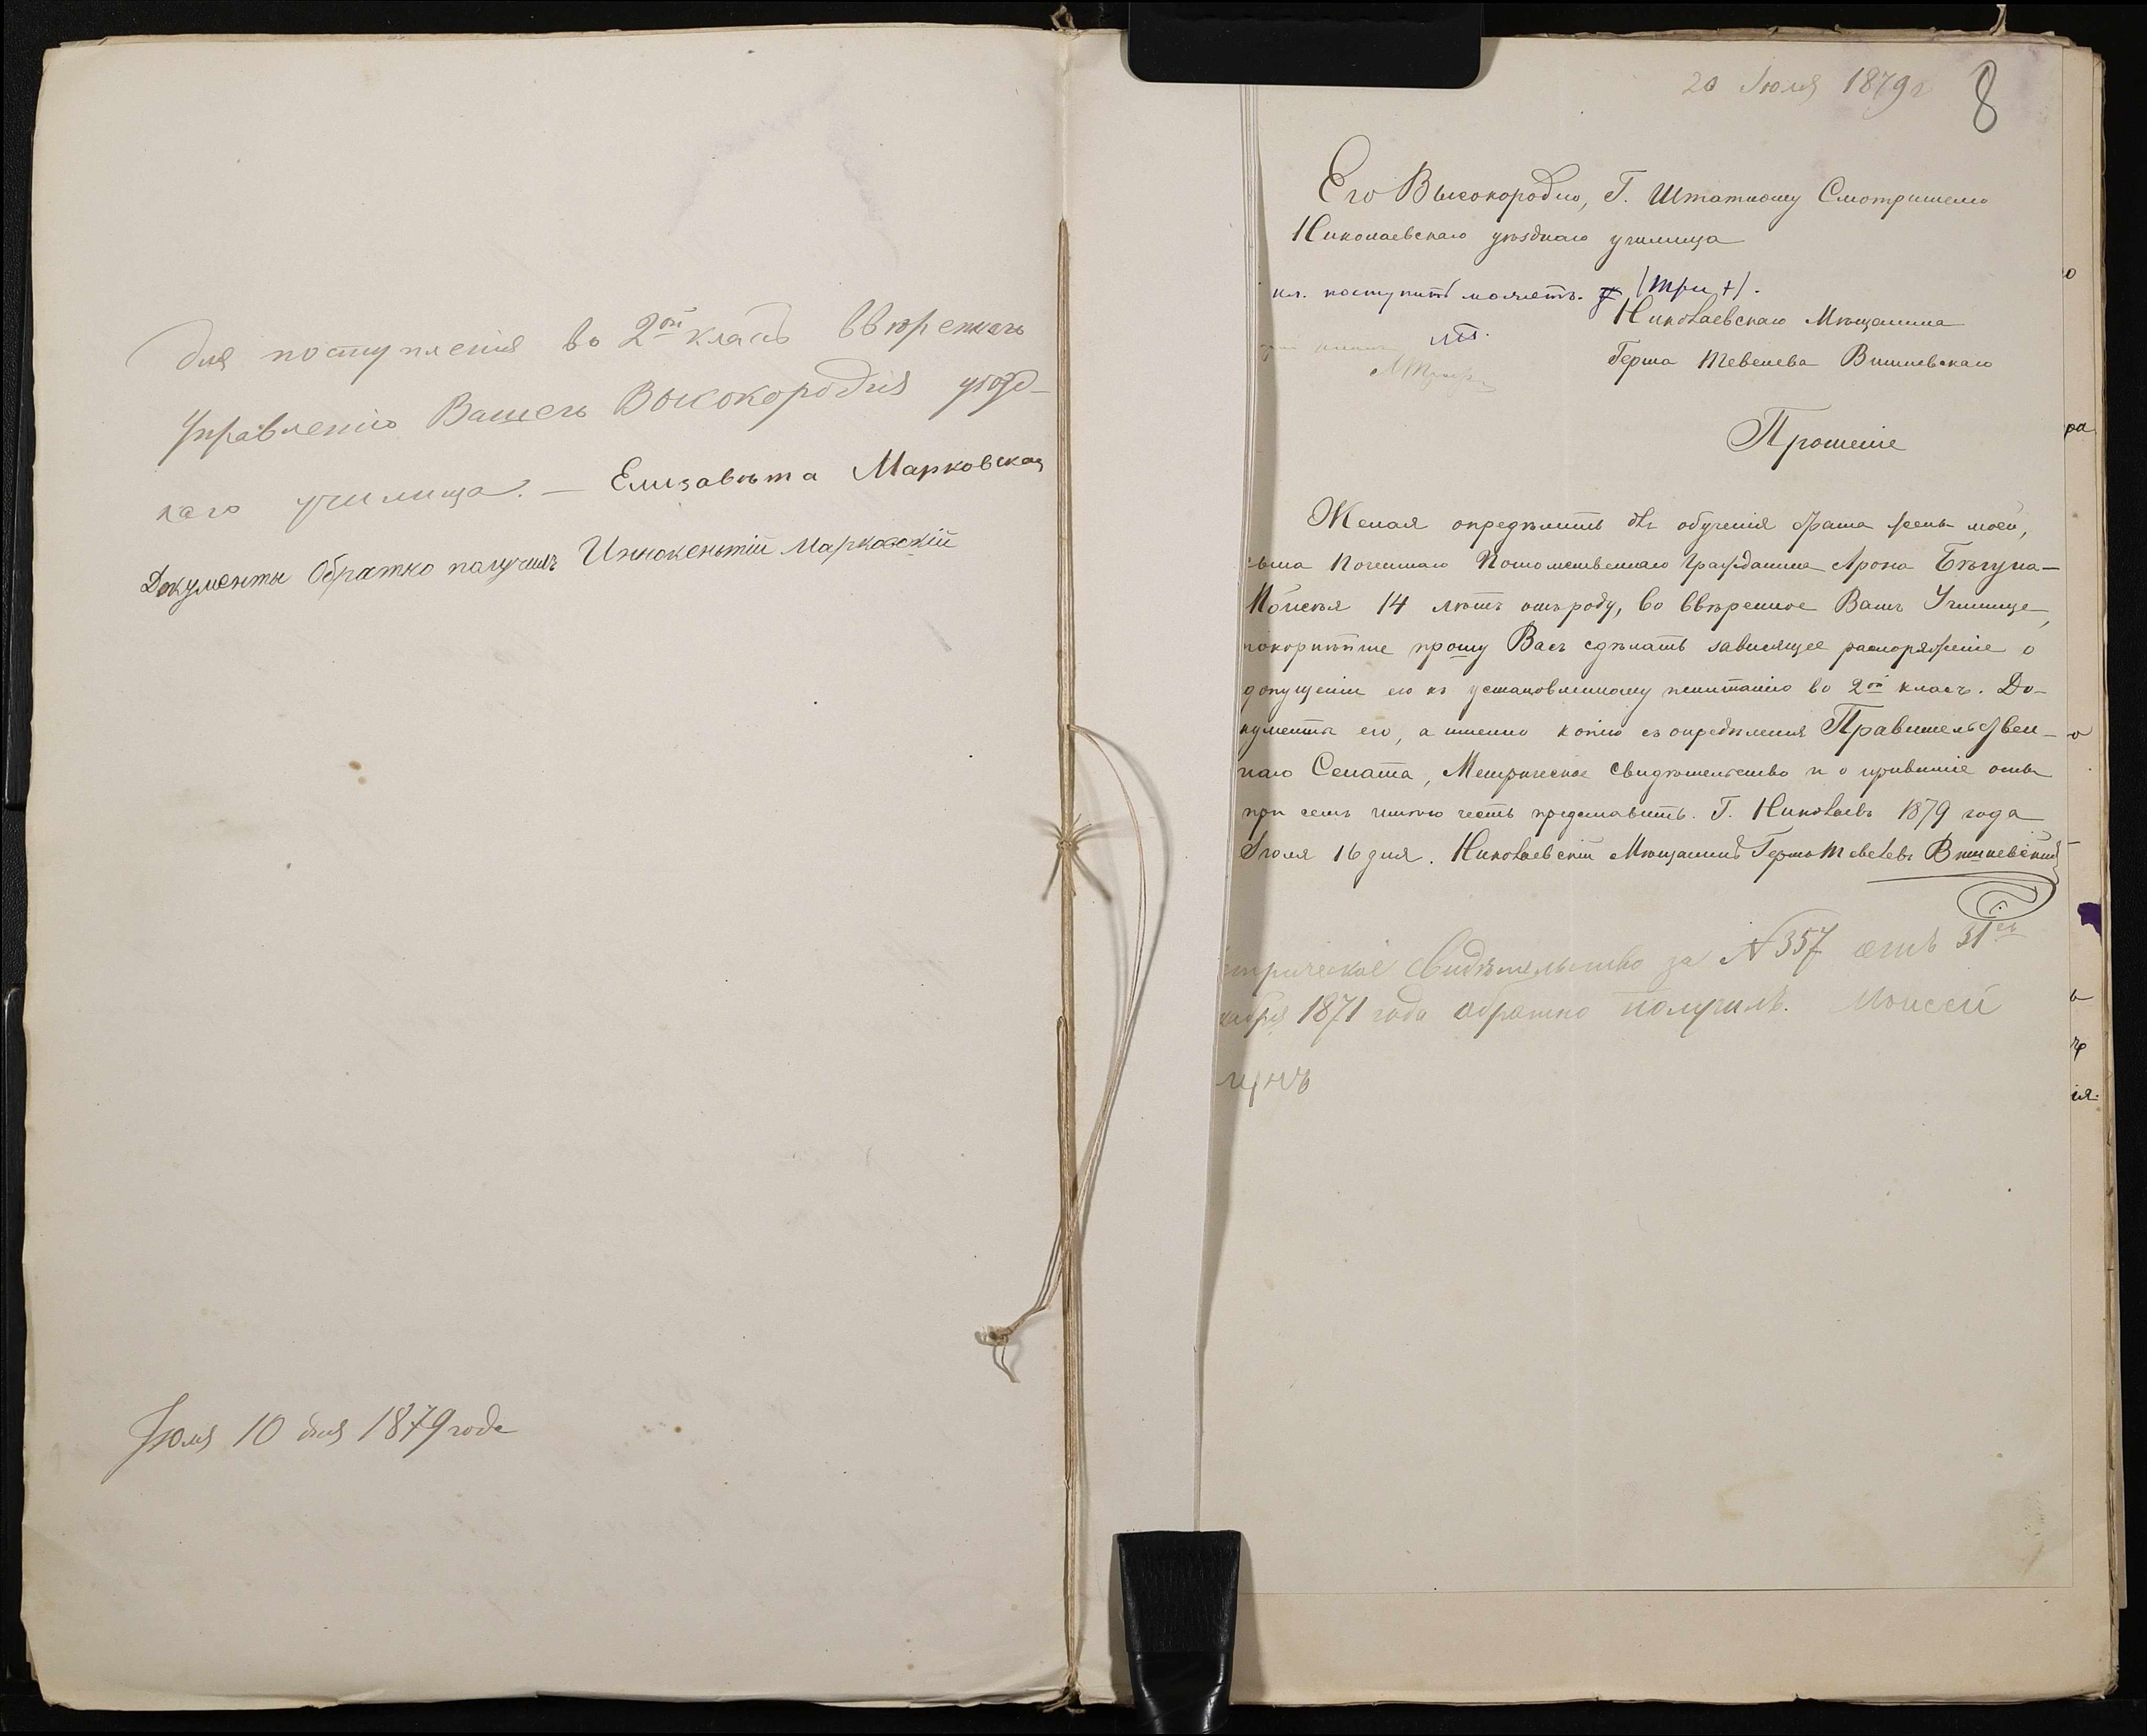 для поступленія во 2ой класъ ввѣреннаго
Управленію Вашего Высокородія уѣзд-
наго училища. — Елизавѣта Марковская
Документы обратно получилъ Иннокентій Марковскій
Іюля 10 дня 1879 года
20 Іюля 1879 г
8
Его Высокородію, Г. Штатному Смотрителю
Николаевскаго уѣзднаго училища
кл. поступить можетъ. (три +).
Николаевскаго Мѣщанина
Герша Тевелева Вишневскаго
Прошеніе
Желая опредѣлить для обученія брата жены моей,
сына Почетнаго Потомственнаго Гражданина Арона Бѣгуна —
Моисея 14 лѣтъ отъ роду, во ввѣренное Вамъ Училище,
покорнѣйше прошу Васъ сдѣлать зависящее распоряженіе о
допущеніи его къ установленному испытанію во 2ой класъ. До-
кументы его, а именно копію съ опредѣленія Правительствен-
наго Сената, Метрическое свидѣтельство и о привитіе оспы
при семъ имѣю честь представить. Г. Николаевъ 1879 года
Іюля 16 дня. Николаевскій Мѣщанинъ Гершъ Тевелевъ Вишневскій
трическое свидѣтельство за № 357 отъ 31го
кабря 1871 года обратно получилъ. Моисей